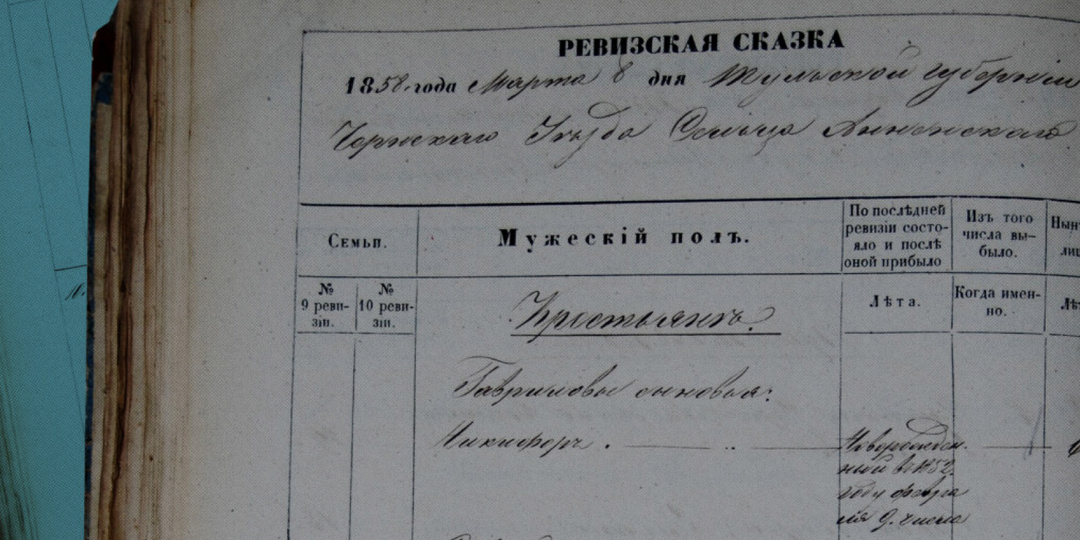 РЕВИЗСКАЯ СКАЗКА
1858 года Марта 8 дня Тульской губерніи
Чернскаго Уѣзда Сельца Анненскаго
Семьи.
Мужескій полъ.
По послѣдней ревизіи состо-
яло и послѣ
оной прибыло
Изъ того
числа вы-
было.
№
9 реви-
зіи.
№
10 реви-
зіи.
Лѣта.
Когда имен-
но.
Крестьянъ
Гавриловы сыновья:
Никифоръ.
ный въ 1852
году февра
ля 9. числа